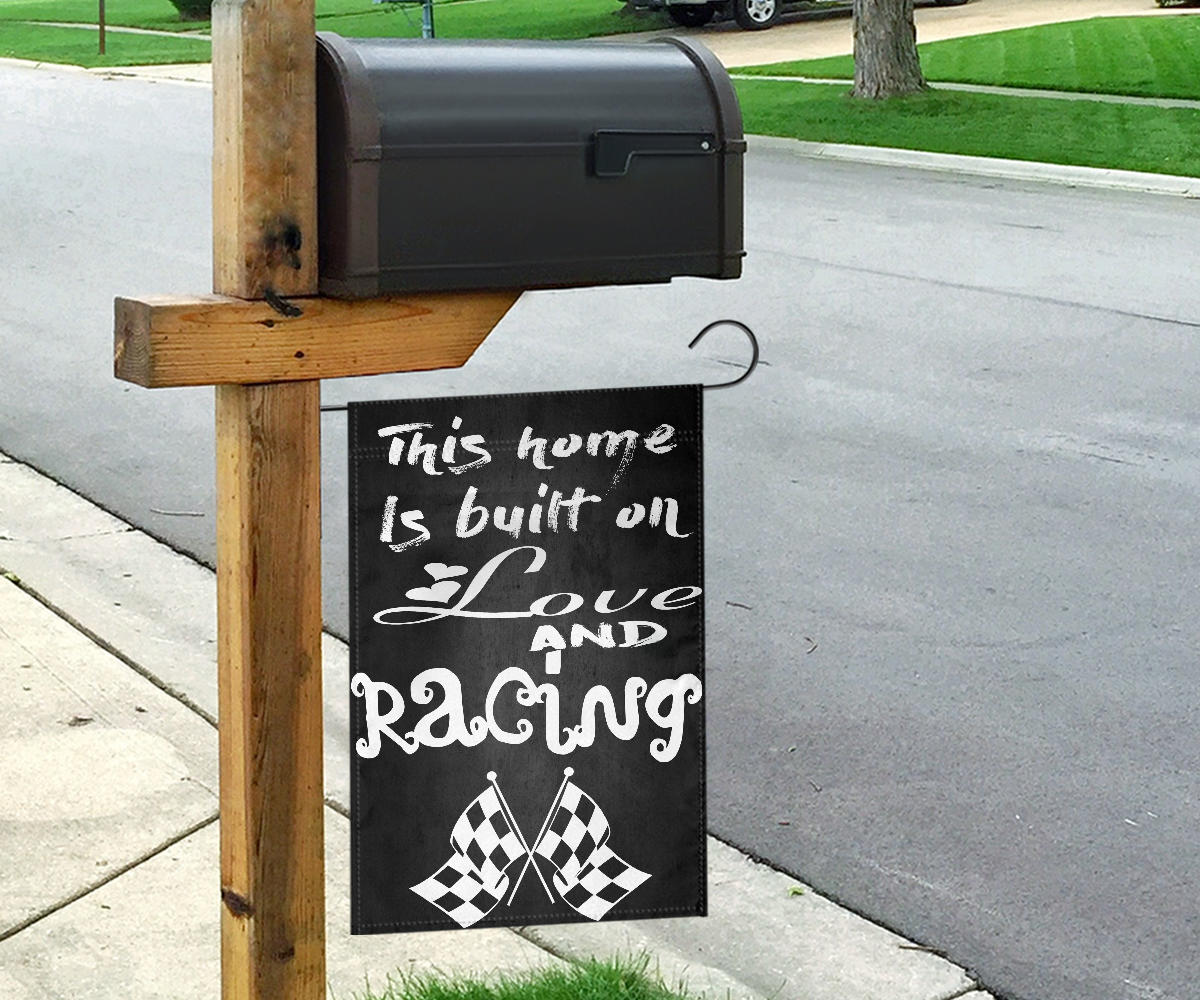 This home
Is built on
Love
AND
Racing